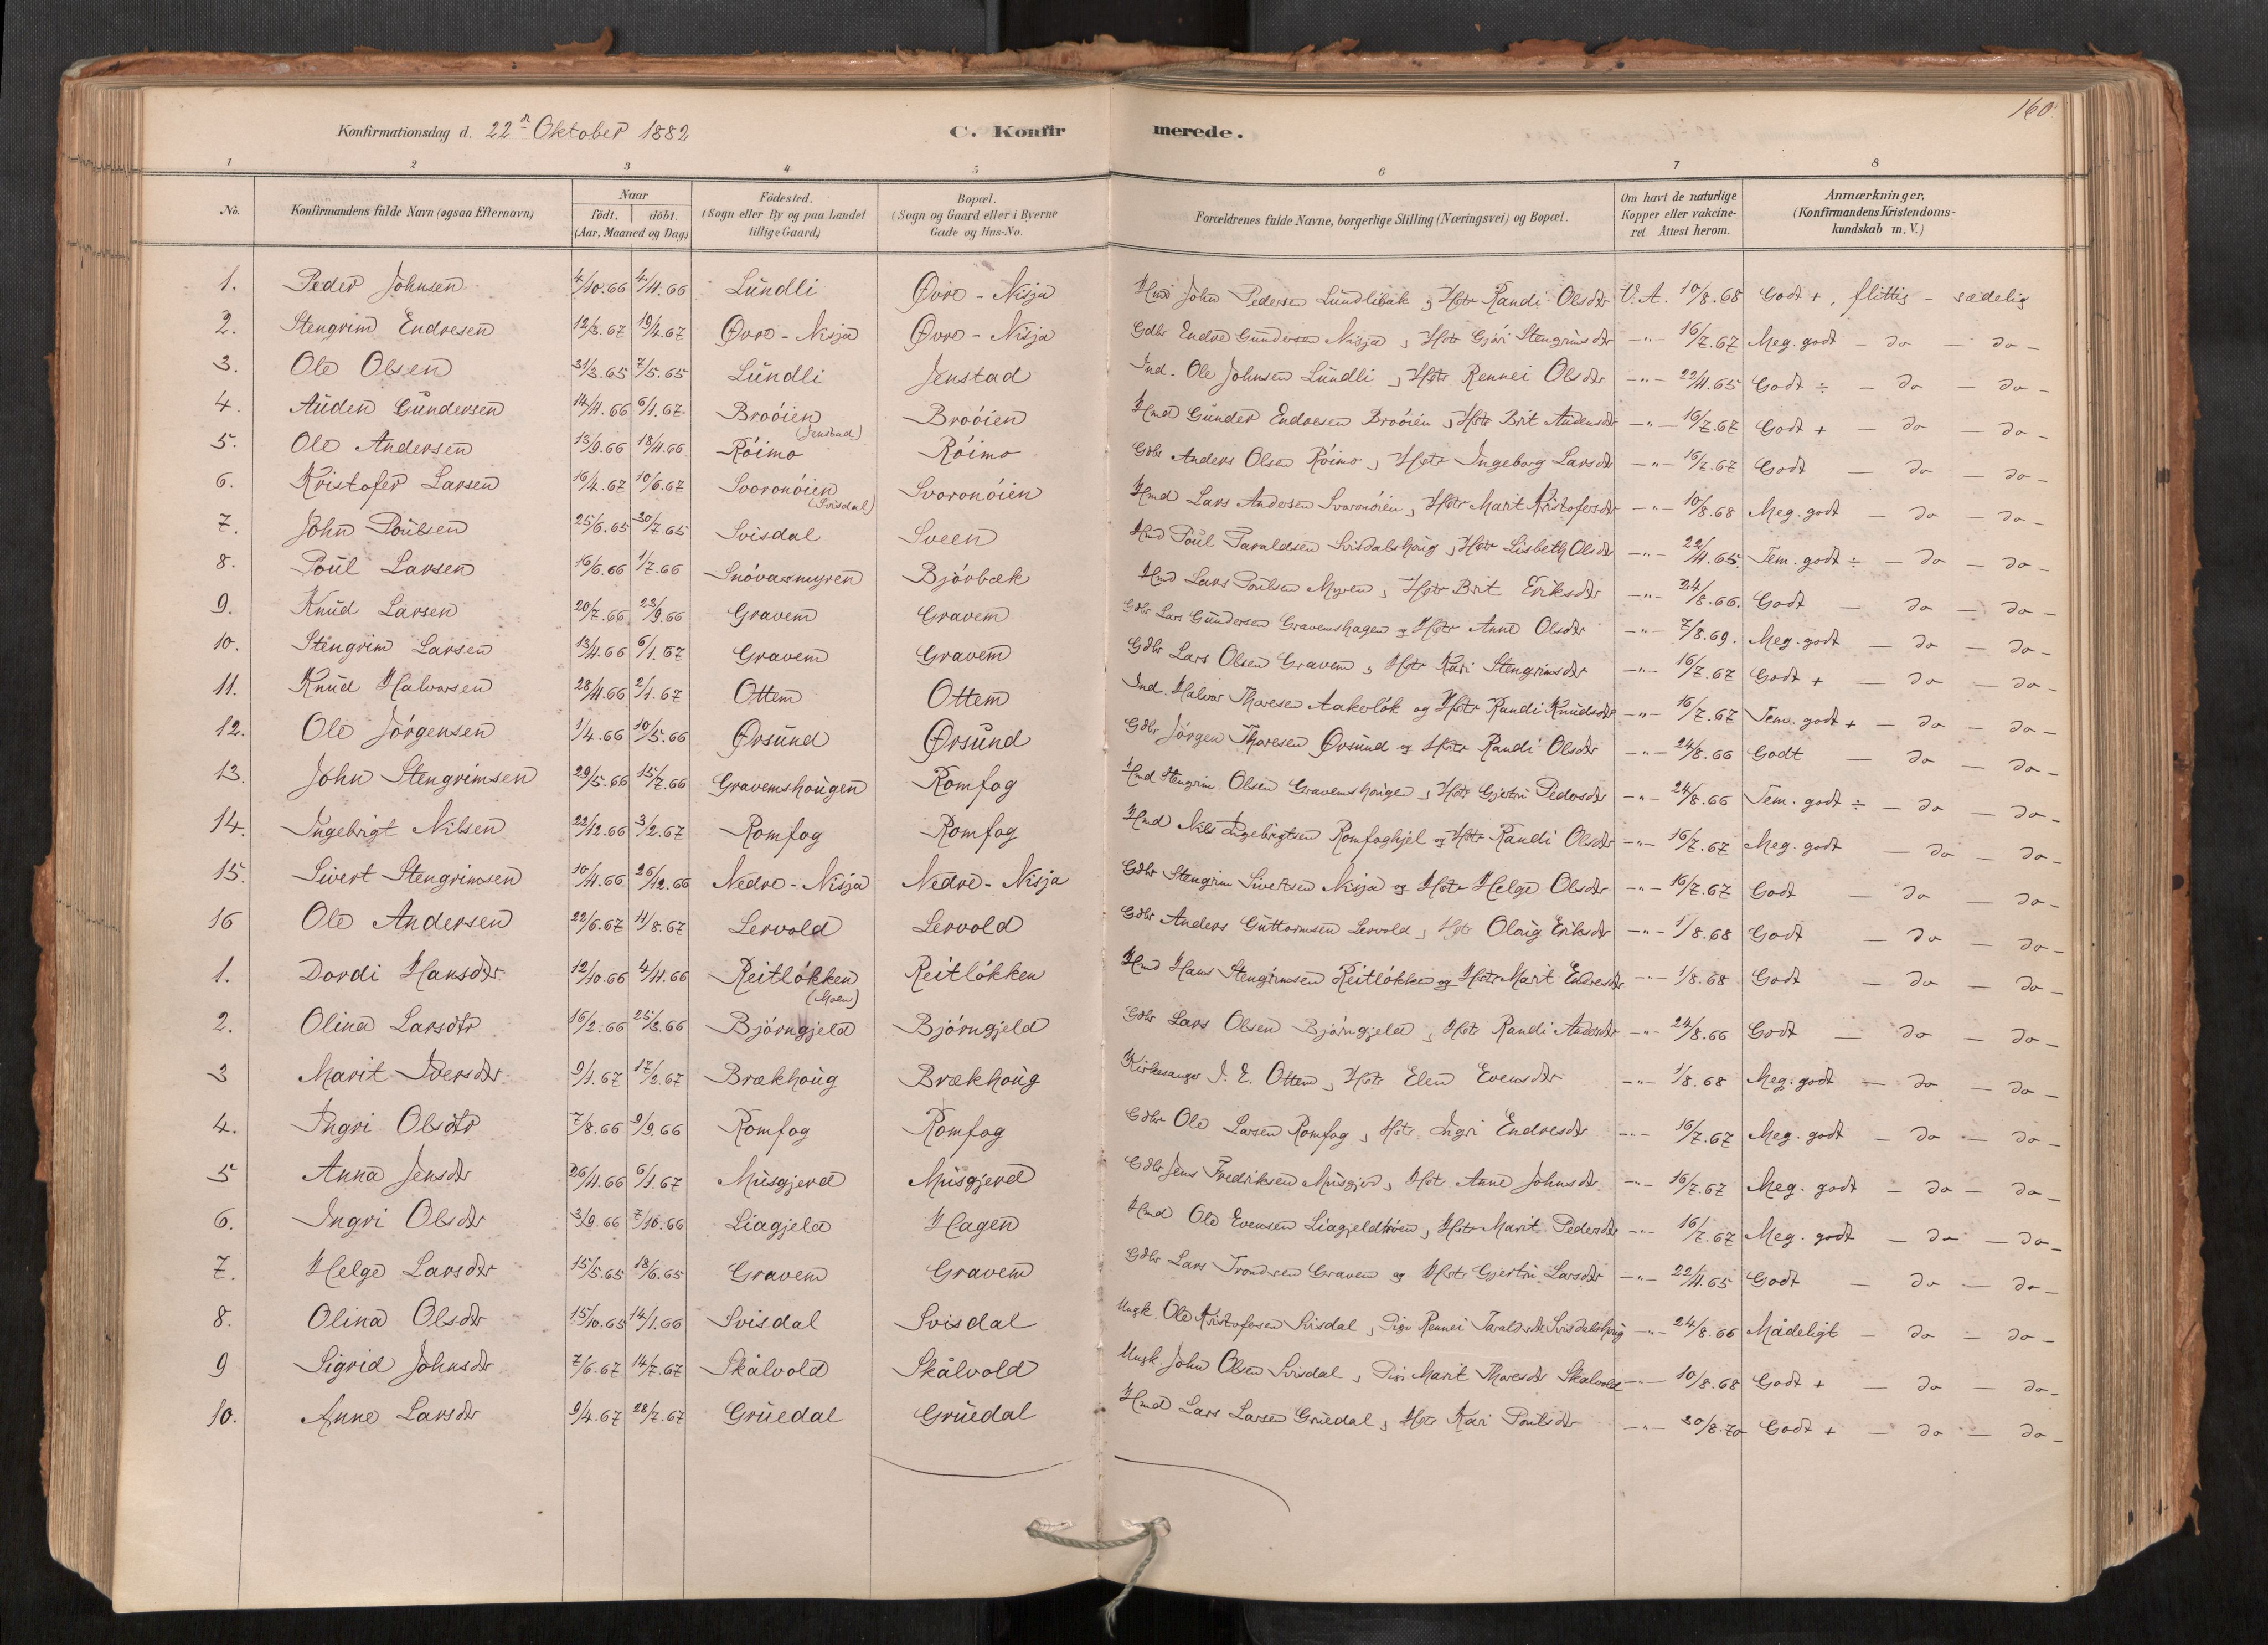 160.
Konfirmationsdag d. 22d Oktober 1882 C. Konfir merede.
1 2 3 4 5 6 7 8
No. Konfirmandens fulde Navn (ogsaa Efternavn) Naar födt. döbt. (Aar, Maaned og Dag) Födested. (Sogn eller By og paa Landet tillige Gaard) Bopæl. (Sogn og Gaard eller i Byerne Gade og Hus-No. Forældrenes fulde Navne, borgerlige Stilling (Næringsvei) og Bopæl. Om havt de naturlige Kopper eller vakcineret. Attest herom. Anmærkninger, (Konfirmandens Kristendomskundskab m. V.)
1. Peder Johnsen 4/10.66 4/11.66 Lundli Øvre-Nisja Hmd John Pedersen Lundlibak, Hstr Randi Olsdtr V.A. 10/8.68 Godt +, flittig - sædelig
2. Stengrim Endresen 12/3.67 19/4.67 Øvre-Nisja Øvre-Nisja Gdbr Endre Gundersen Nisja, Hstr Gjøri Stengrimsdtr -"- 16/7.67 Meg. godt - do - do -
3. Ole Olsen 31/3.65 7/5.65 Lundli Jenstad Ind. Ole Johnsen Lundli, Hstr Rennei Olsdtr -"- 22/11.65 Godt ÷ - do - do -
4. Auden Gundersen 14/11.66 6/1.67 Broøien (Jenstad) Broøien Hmd Gunder Endresen Broøien, Hstr Brit Audensdtr -"- 16/7.67 Godt + - do - do -
5. Ole Andersen 13/9.66 18/11.66 Röimo Röimo Gdbr Anders Olsen Röimo, Hstr Ingeborg Larsdtr -"- 16/7.67 Godt - do - do -
6. Kristofer Larsen 16/4.67 10/6.67 Svoronöien (Svisdal) Svoronöien Hmd Lars Andersen Svoronöien, Hstr Marit Kristofersdtr -"- 10/8.68 Meg. godt - do - do -
7. John Poulsen 25/6.65 30/7.65 Svisdal Sveen Hmd Poul Taraldsen Svisdalshoug, Hstr Lisbeth Olsdtr -"- 22/11.65. Tem. godt ÷ - do - do -
8. Poul Larsen 16/6.66 1/7.66 Snövasmyren Björbæk Hmd Lars Poulsen Myren, Hstr Brit Eriksdtr -"- 24/8.66. Godt - do - do -
9. Knud Larsen 20/7.66 23/9.66 Gravem Gravem Gdbr Lars Gundersen Gravemshagen og Hstr Anne Olsdtr -"- 7/8.69. Meg. godt - do - do -
10. Stengrim Larsen 13/11.66 6/1.67 Gravem Gravem Gdbr Lars Olsen Gravem, Hstr Kari Stengrimsdtr -"- 16/7.67 Godt + - do - do -
11. Knud Halvorsen 28/11.66 2/1.67 Ottem Ottem Ind. Halvor Thoresen Aakerløk og Hstr Randi Knudsdtr -"- 16/7.67 Tem. godt + - do - do -
12. Ole Jörgensen 1/4.66 10/5.66 Ørsund Ørsund Gdbr Jörgen Thoresen Ørsund og Hstr Randi Olsdtr -"- 24/8.66 Godt - do - do -
13. John Stengrimsen 29/5.66 15/7.66 Gravemshougen Romfog Hmd Stengrim Olsen Gravemshougen, Hstr Gjertru Pedersdtr -"- 24/8.66 Tem. godt ÷ - do - do -
14. Ingebrigt Nilsen 22/12.66 3/2.67 Romfog Romfog Hmd Nils Ingebrigtsen Romfoghjel og Hstr Randi Olsdtr -"- 16/7.67 Meg. godt - do - do -
15. Sivert Stengrimsen 10/11.66 26/12.66 Nedre-Nisja Nedre-Nisja Gdbr Stengrim Sivertsen Nisja og Hstr Helge Olsdtr -"- 16/7.67 Godt - do - do -
16 Ole Andersen 22/6.67 11/8.67 Lervold Lervold Gdbr Anders Guttormsen Lervold, Hstr Olaug Eriksdtr -"- 1/8.68 Godt - do - do -
1. Dordi Hansdtr 12/10.66 4/11.66 Reitlökken (Moen) Reitlökken Hmd Hans Stengrimsen Reitlökken og Hstr Marit Endresdtr -"- 1/8.68 Godt - do - do -
2. Olina Larsdtr 16/2.66 25/3.66 Björngjeld Björngjeld Gdbr Lars Olsen Björngjeld, Hstr Randi Andersdtr -"- 24/8.66 Godt - do - do -
3 Marit Iversdtr. 9/1.67 17/2.67 Brækhoug Brækhoug Kirkesanger I. E. Ottem, Hstr Elen Evensdtr -"- 1/8.68 Meg. godt - do - do -
4. Ingri Olsdtr 7/8.66 9/9.66 Romfog Romfog Gdbr Ole Larsen Romfog, Hstr Ingri Endresdtr -"- 16/7.67 Meg. godt - do - do -
5 Anna Jensdtr 26/11.66 6/1.67 Musgjerd Musgjerd Gdbr Jens Fredriksen Musgjerd, Hstr Anne Johnsdtr -"- 16/7.67 Meg. godt - do - do -
6. Ingri Olsdtr 3/9.66 7/10.66 Liagjeld Hagen Hmd Ole Evensen Liagjeldtrøen, Hstr Marit Pedersdtr -"- 16/7.67 Meg. godt - do - do -
7. Helge Larsdtr 15/5.65 18/6.65 Gravem Gravem Gdbr Lars Trondsen Gravem og Hstr Gjertru Larsdtr -"- 22/11.65 Godt - do - do -
8. Olina Olsdtr 15/10.65 14/1.66 Svisdal Svisdal Ungk. Ole Kristofersen Svisdal, Pige Rennei Taraldsdtr Svisdalshoug -"- 24/8.66 Mådeligt - do - do -
9 Sigrid Johnsdtr 7/6.67 14/7.67 Skålvold Skålvold Ungk. John Olsen Svisdal, Pige Marit Thoresdtr Skålvold -"- 10/8.68 Godt + - do - do -
10. Anne Larsdtr 9/4.67 28/7.67 Gruedal Gruedal Hmd Lars Larsen Gruedal, Hstr Kari Poulsdtr -"- 30/8.70 Godt + - do - do -